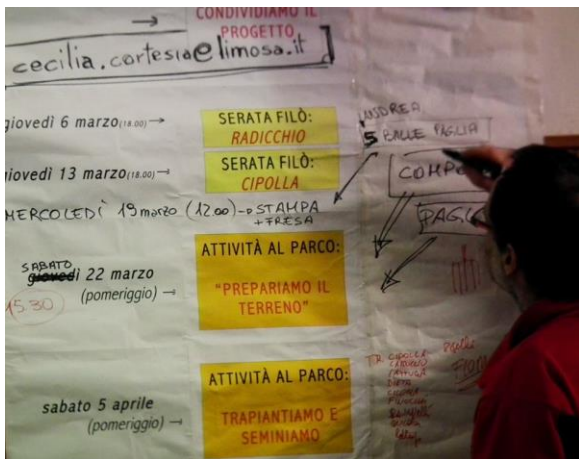 CONDIVIDIAMO IL
PROGETTO
cecilia.cortesia@limosa.it
giovedì 6 marzo (18.00) →
SERATA FILÒ:
RADICCHIO
giovedì 13 marzo (18.00) →
SERATA FILÒ:
CIPOLLA
MERCOLEDÌ 19 marzo (12.00) → STAMPA
+ FRESA
SABATO
giovedì 22 marzo
(pomeriggio) →
15.30
ATTIVITÀ AL PARCO:
"PREPARIAMO IL
TERRENO"
sabato 5 aprile
(pomeriggio) →
ATTIVITÀ AL PARCO:
TRAPIANTIAMO E
SEMINIAMO
ANDREA
5 BALLE PAGLIA
COMPO
PAGL
CIPOLLA